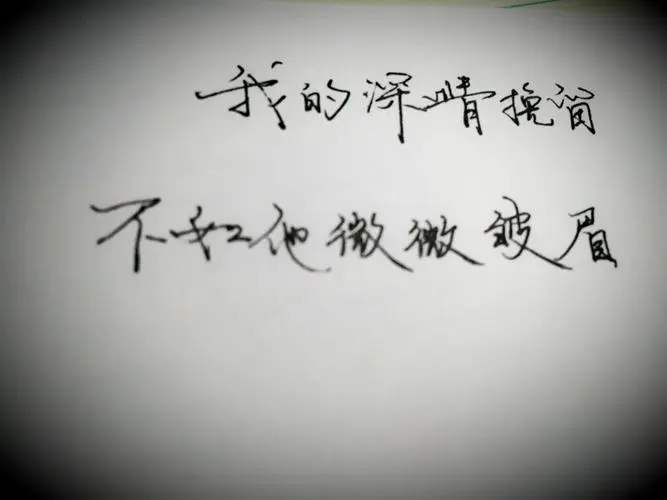 我的深情挽留
不如他微微皱眉